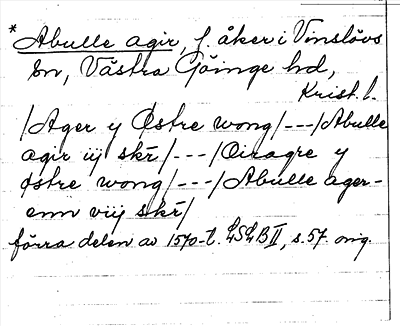 * Abulle agir, f. åker i Vinslövs
sn, Västra Göinge hd,
Krist. l.
/Ager y Østre wong/---/Abulle
agir iij skr/---/Oiragre y
østre wong/---/Abulle ager-
enn viij skr/
förra delen av 1570-t. LSLB II, s. 57. orig.